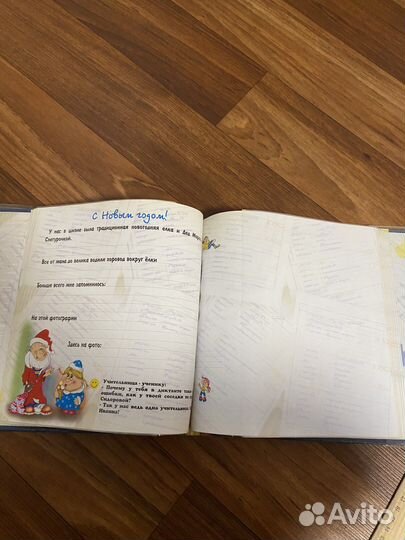 С Новым годом!
У нас в школе была традиционная новогодняя ёлка и Дед Мороз
Снегурочкой.
Все от мала до велика водили хоровод вокруг ёлки
Больше всего мне запомнилось:
На этой фотографии
Здесь на фото:
Учительница - ученику:
- Почему у тебя в диктанте
ошибки, как у твоей соседки
Сидоровой?
- Так у нас ведь одна учительница
Иванна!
Avito